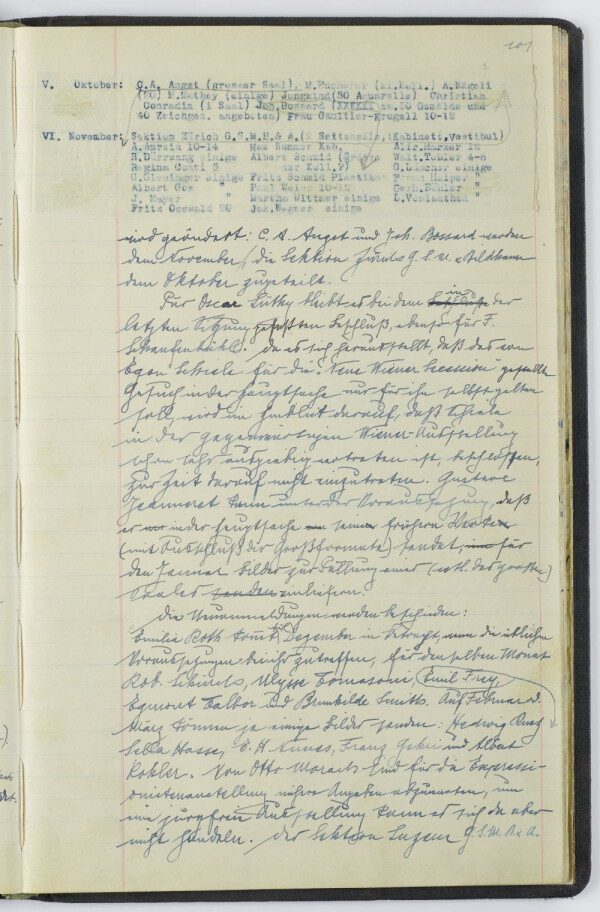 101
V. Oktober: C.A. Angst (grosser Saal), M. Pucherer (kl. Koll.) A. Nägeli
(20) H. Mathey (einige) Jungkind (50 Aquarelle) Christian
Conradin (1 Saal) Joh. Bossard (xxxxxx ca. 30 Gemälde und
40 Zeichgen. angeboten) Frau Gaultier-Krugell 10-12
VI. November: Sektion Zürich G.S.M.B.& A. (2 Seitensäle, Kabinett, Vestibul)
A. Amrein 10-14 Max Sommer Kab. Alfr. Marxer 12
R. Dürrwang einige Albert Schmid (Gruppe Walt. Tobler 4-6
Regina Conti 5 oder Koll.?) G. Lüscher einige
O. Glesinger einige Fritz Schmid Plastiken Franz Holper "
Albert Gos " Paul Weiss 10-12 Gerh. Bühler "
J. Meyer " Martha Wittmer einige L. Vonlanthen "
Fritz Osswald 20 Jak. Wagner einige
wird geändert: C. A. Angst und Joh. Bossard werden
dem November, die Sektion Zürich G. S. M. u. Bildhauer
dem Oktober zugeteilt.
Für Oscar Lüthy bleibt es bei dem in der
letzten Sitzung gefaßten Beschluß, ebenso für F.
da es sich herausstellt, daß das von
Egon Schiele für die "Neue Wiener Secession" gestellte
Gesuch in der Hauptsache nur für ihn selbst gelten
soll, wird im Hinblick darauf, daß Schiele
in der gegenwärtigen Wiener-Ausstellung
schon sehr ausgiebig vertreten ist, beschlossen,
zur Zeit darauf nicht einzutreten. Gustave
Jeanneret kann unter der Voraussetzung, daß
er in der Hauptsache seine frühern Werke
(mit Ausschluß der Großformate) sendet, für
den Januar Bilder zur Füllung eines (evtl. des großen)
Saales einliefern.
Die Neuanmeldungen werden beschieden:
Emilie Roth kommt Dezember in Betracht, wenn die üblichen
Voraussetzungen bei ihr zutreffen, für denselben Monat
Rob. Schürch, Ulysse Tomasoni, Emil Frey,
Egmont Talbor und Brunhilde Smitts. Auf Februar od.
März können je einige Bilder senden: Hedwig
Sella Hasse, E. H. Franz Gehri und Albert
Kohler. Von Otto Morach sind für die Expressi-
onistenausstellung nähere Angaben abzuwarten, um
eine juryfreie Ausstellung kann es sich da aber
nicht handeln. Der Sektion Luzern G. S. M. B. & A.